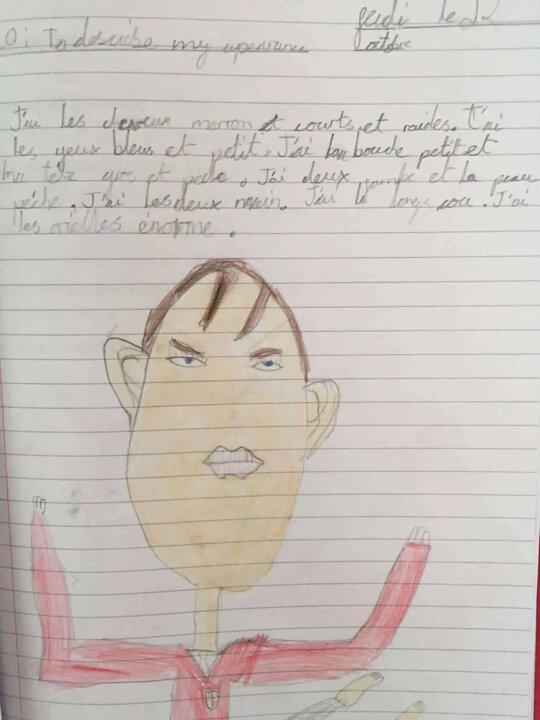 jeudi le 22
octobre
O: To describe my aperiance
J'ai les cheveux marron et courts et raides. J'ai
les yeux bleus et petit. J'ai la bouche petit et
ma têtê gros et peche. J'ai deux et la peau
pêche. J'ai les deux main. J'ai le long cou. J'ai
les orielles énorme.